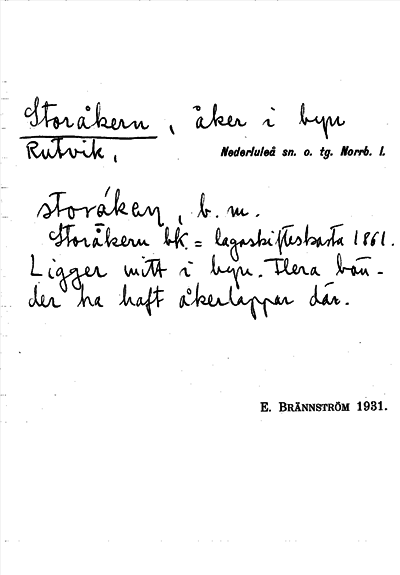 Storåkern, åker i byn
Rutvik, Nederluleå sn. o. tg. Norrb. l.
storåkaṇ, b. m.
Storåkern bk. = lagaskifteskarta 1861.
Ligger mitt i byn. Flera bön-
der ha haft åkerlappar där.
E. BRÄNNSTRÖM 1931.